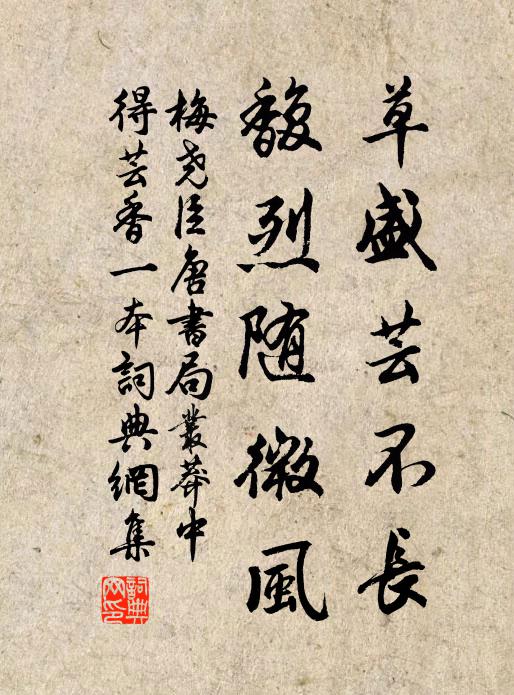 草盛芸不長
馥烈随微風
梅堯臣唐書局叢莽中
得芸香一本詞典網集
詞典網印